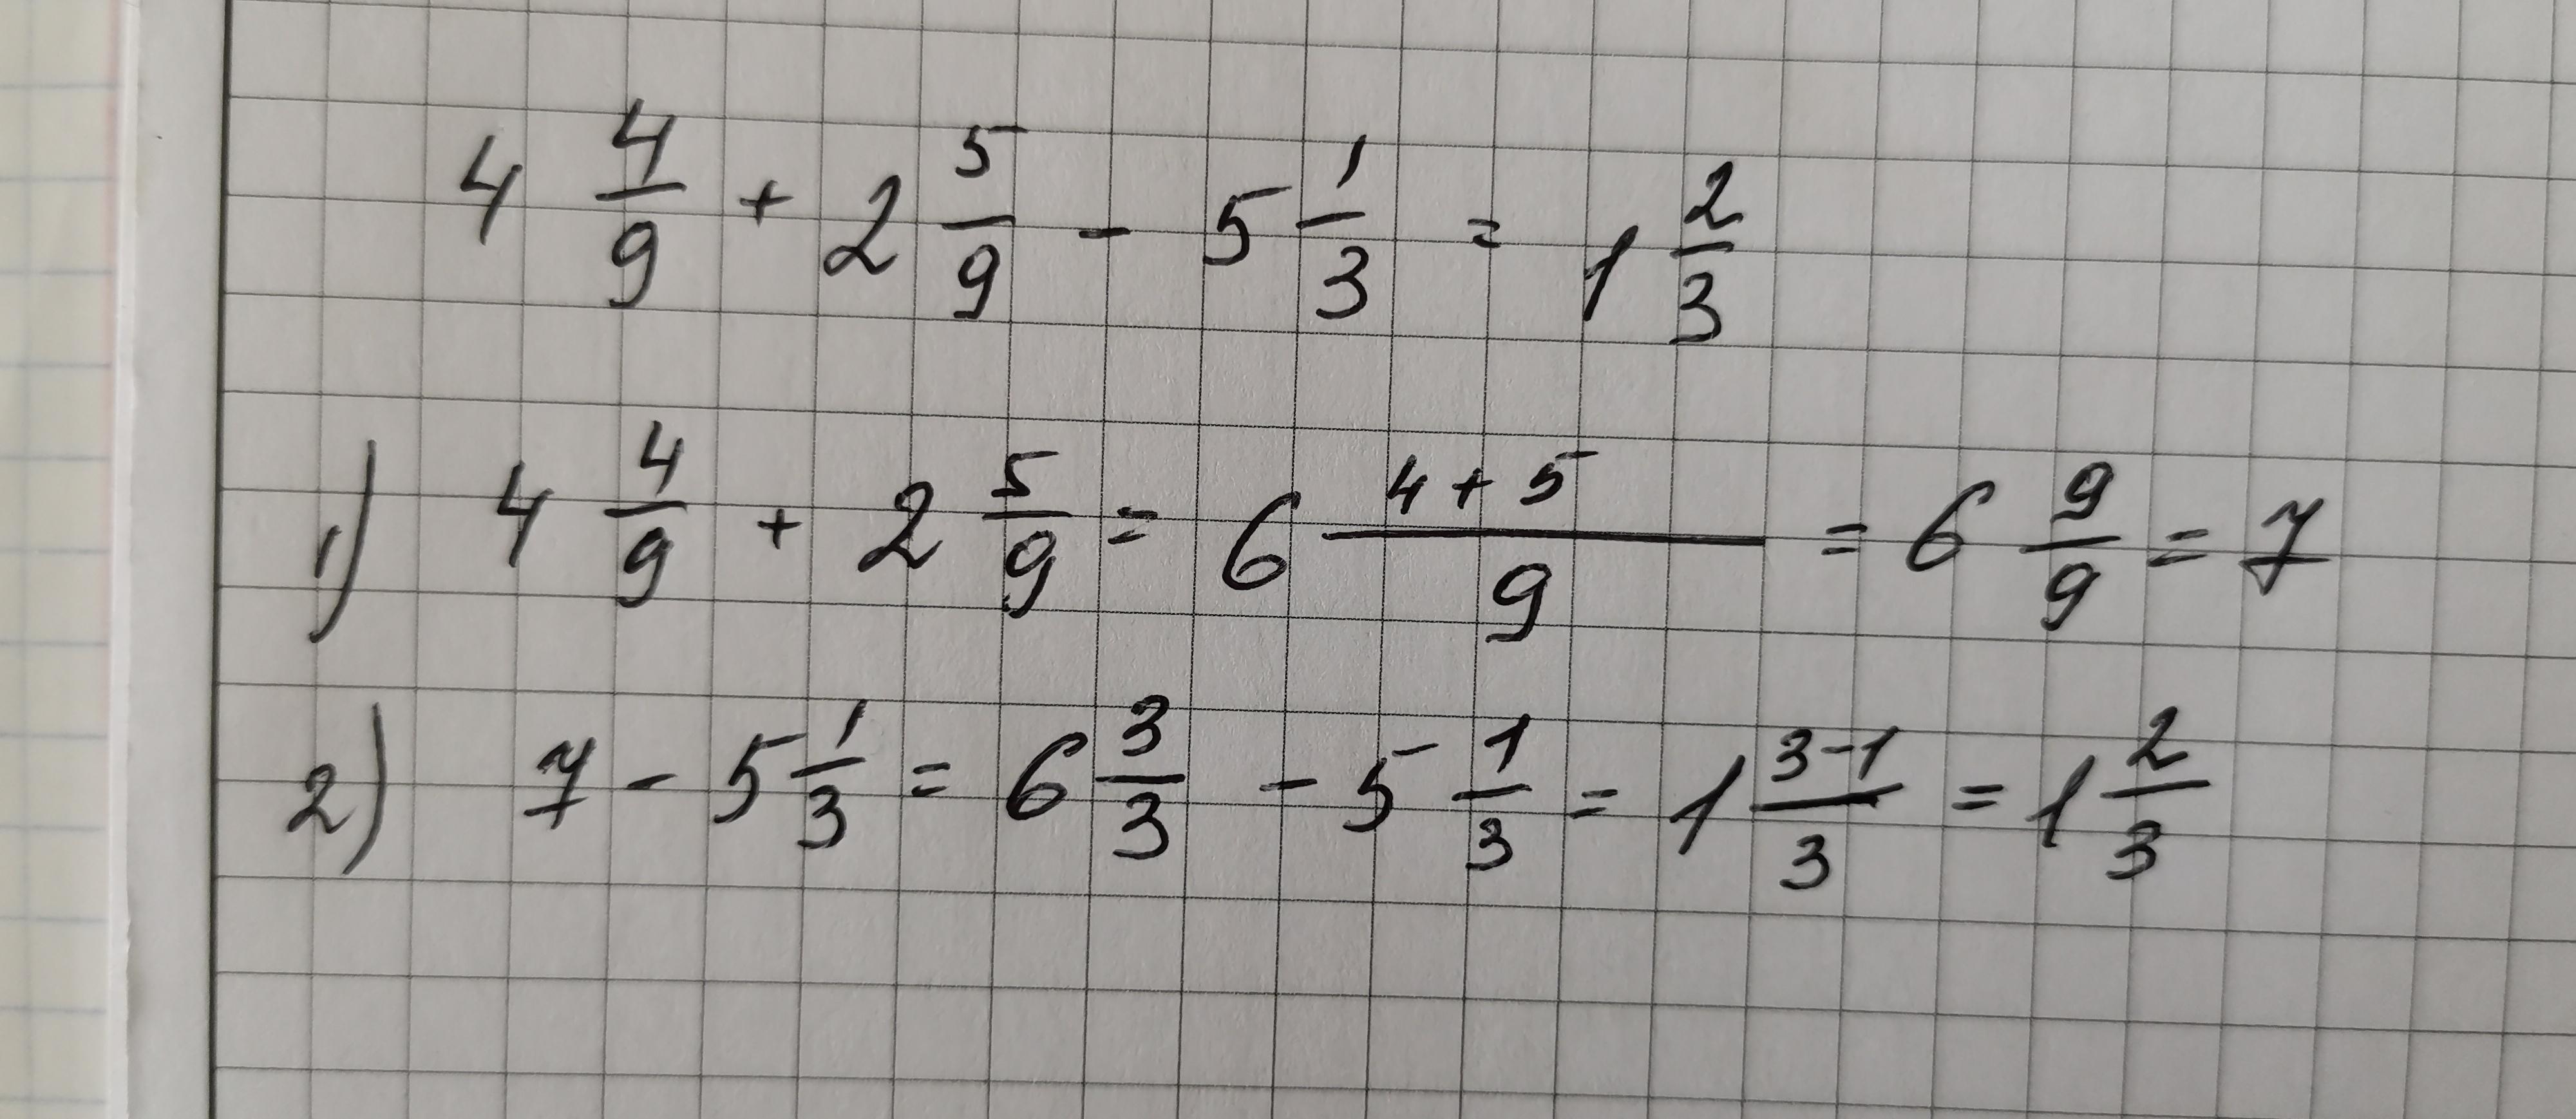 4 4/9 + 2 5/9 - 5 1/3 = 1 2/3
1) 4 4/9 + 2 5/9 = 6 (4+5)/9 = 6 9/9 = 7
2) 7 - 5 1/3 = 6 3/3 - 5 1/3 = 1 (3-1)/3 = 1 2/3